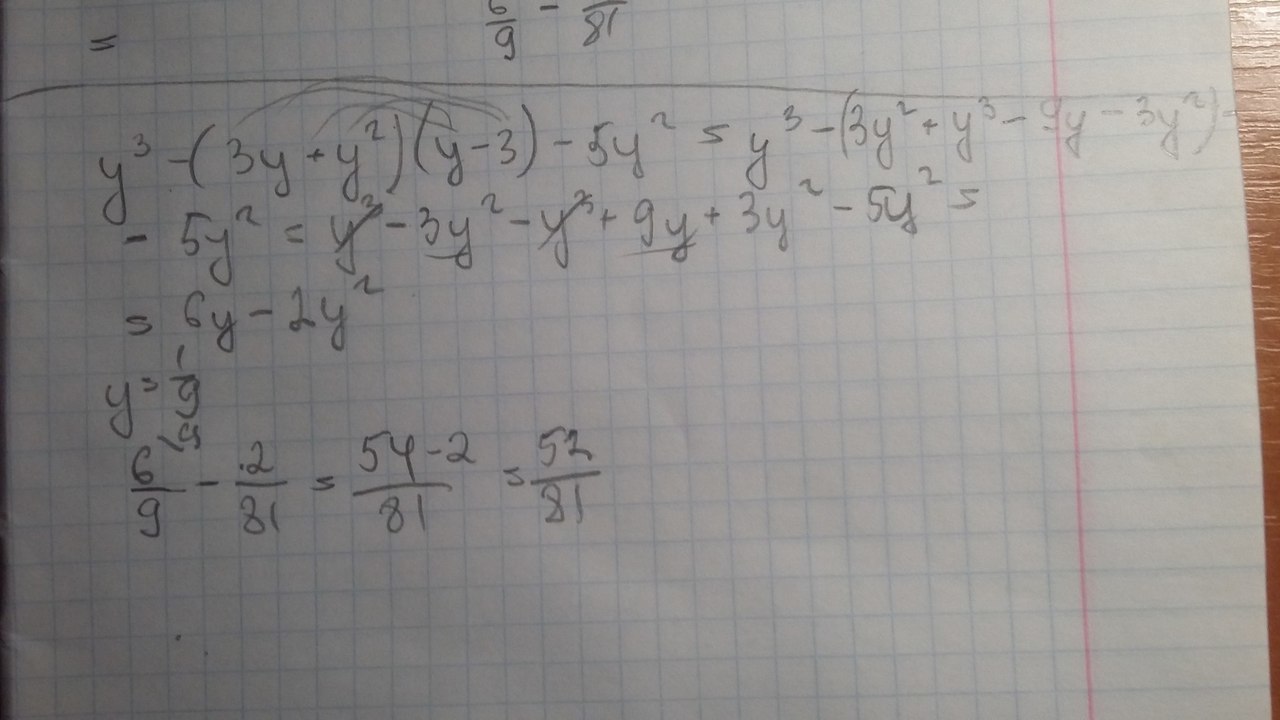 = 6/9 - /81
y³ - (3y + y²)(y - 3) - 5y² = y³ - (3y² + y³ - 9y - 3y²) -
- 5y² = y³ - 3y² - y³ + 9y + 3y² - 5y² =
= 6y - 2y²
y = 1/9
6/9 \9 - 2/81 = 54-2/81 = 52/81